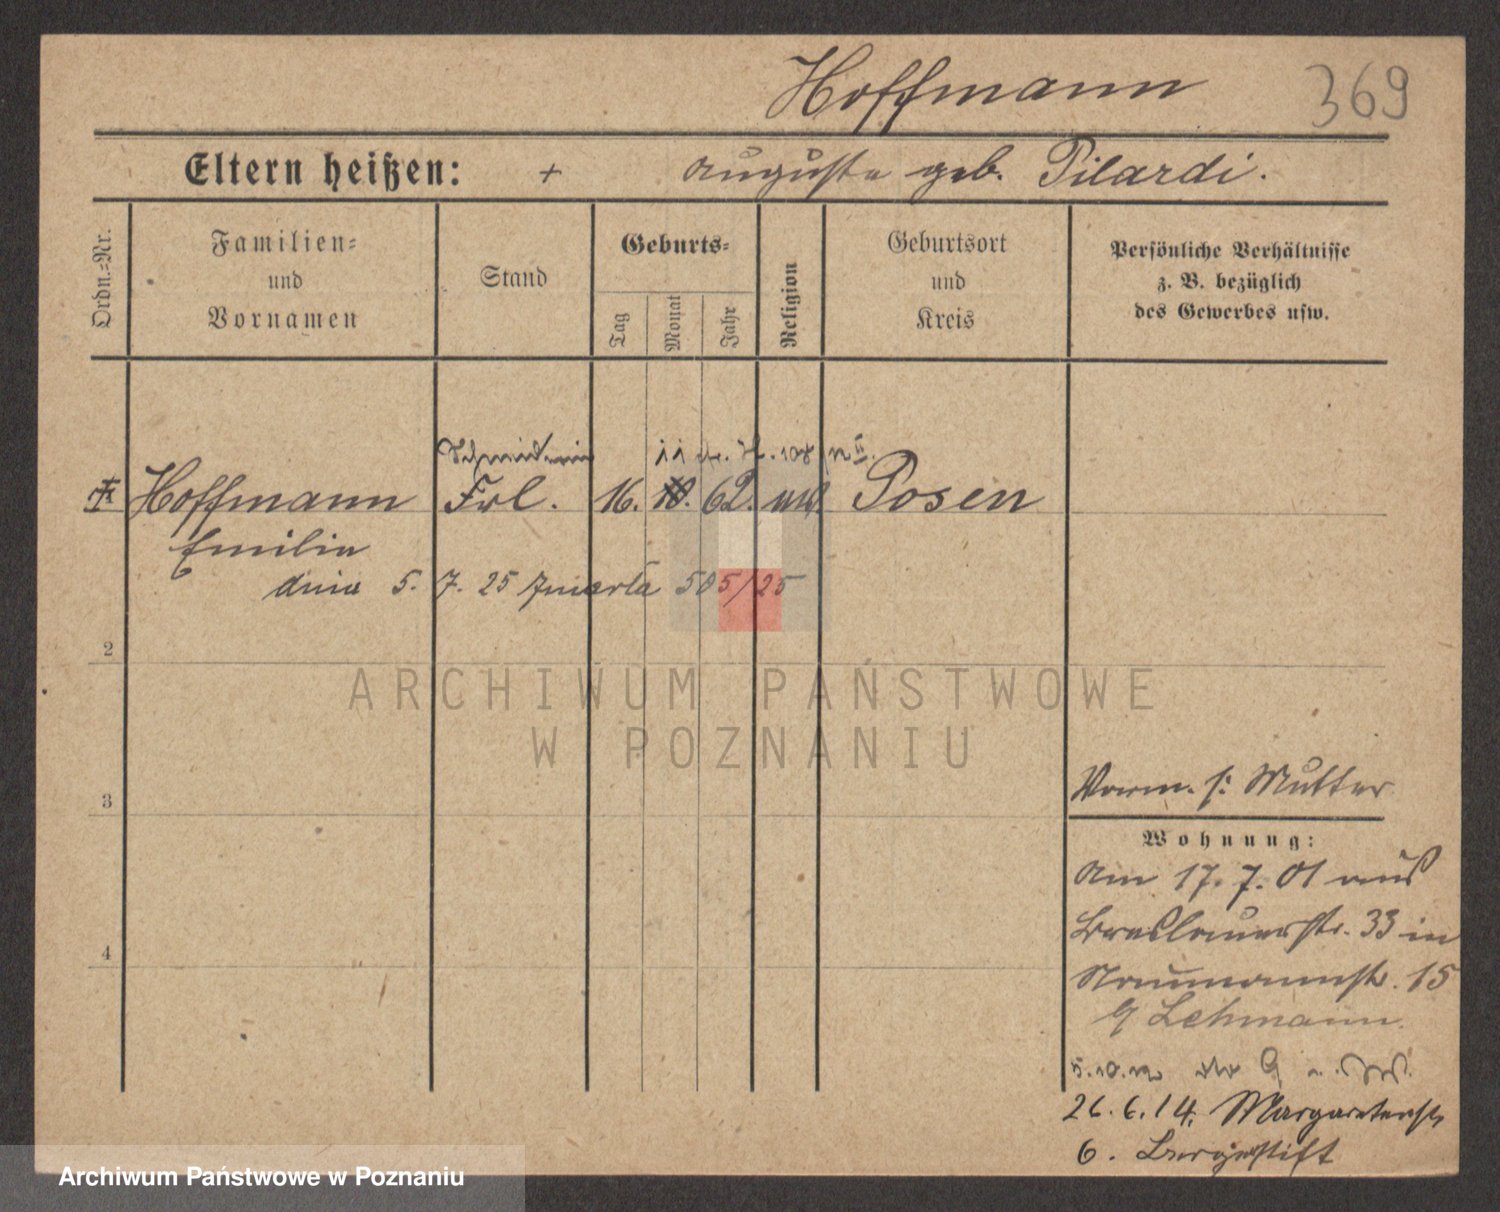 Hoffmann 369
Eltern heißen: + Auguste geb. Pilardi.
Ordn.-Nr.
Familien-
und
Vornamen
Stand
Geburts-
Tag
Monat
Jahr
Religion
Geburtsort
und
Kreis
Persönliche Verhältnisse
z. B. bezüglich
des Gewerbes usw.
Hoffmann Frl. 16. 62. Posen
Emilie
dnia 5. 7. 25 zmarła 505/25
2
3
4
ARCHIWUM PAŃSTWOWE
W POZNANIU
Mutter
Wohnung:
Am 17. 7. 01 aus
Breslauerstr. 33 in
Naumannstr. 15
Lehmann
26. 6. 14. Margaretenstr.
6. Bergerstift
Archiwum Państwowe w Poznaniu